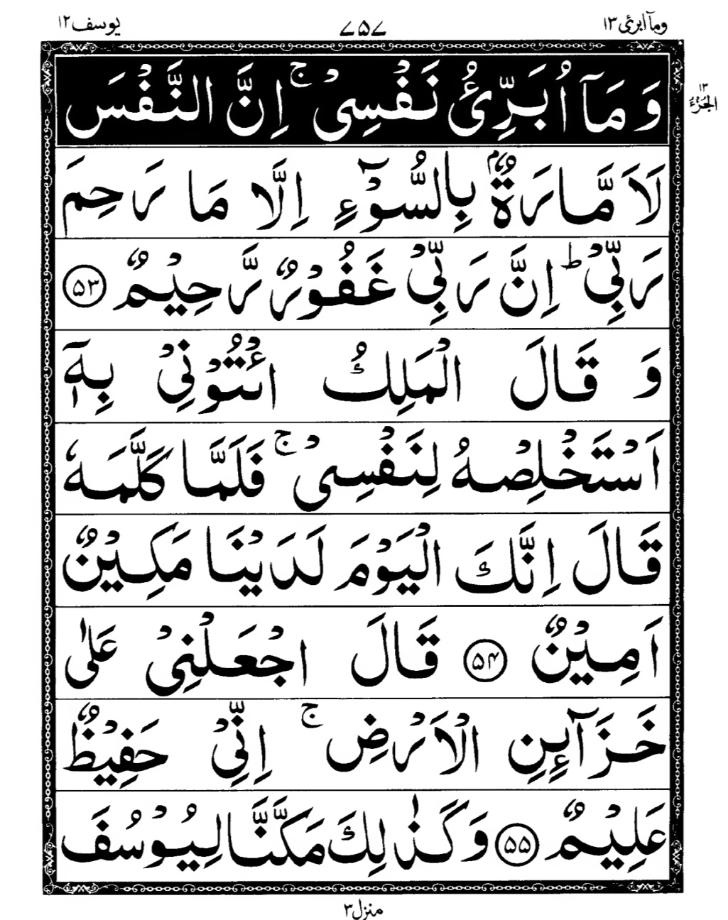 وما ابرئ ١٣ ٧٥٧ يوسف ١٢
١٣
الجزء
وَمَآ اُبَرِّئُ نَفْسِیْ ۚ اِنَّ النَّفْسَ
لَاَمَّارَةٌۢ بِالسُّوْٓءِ اِلَّا مَا رَحِمَ
رَبِّیْ ؕ اِنَّ رَبِّیْ غَفُوْرٌ رَّحِیْمٌ ﴿۵۳﴾
وَ قَالَ الْمَلِكُ ائْتُوْنِیْ بِهٖۤ
اَسْتَخْلِصْهُ لِنَفْسِیْ ۚ فَلَمَّا كَلَّمَهٗ
قَالَ اِنَّكَ الْیَوْمَ لَدَیْنَا مَكِیْنٌ
اَمِیْنٌ ﴿۵۴﴾ قَالَ اجْعَلْنِیْ عَلٰی
خَزَآئِنِ الْاَرْضِ ۚ اِنِّیْ حَفِیْظٌ
عَلِیْمٌ ﴿۵۵﴾ وَكَذٰلِكَ مَكَّنَّا لِیُوْسُفَ
منزل ٣